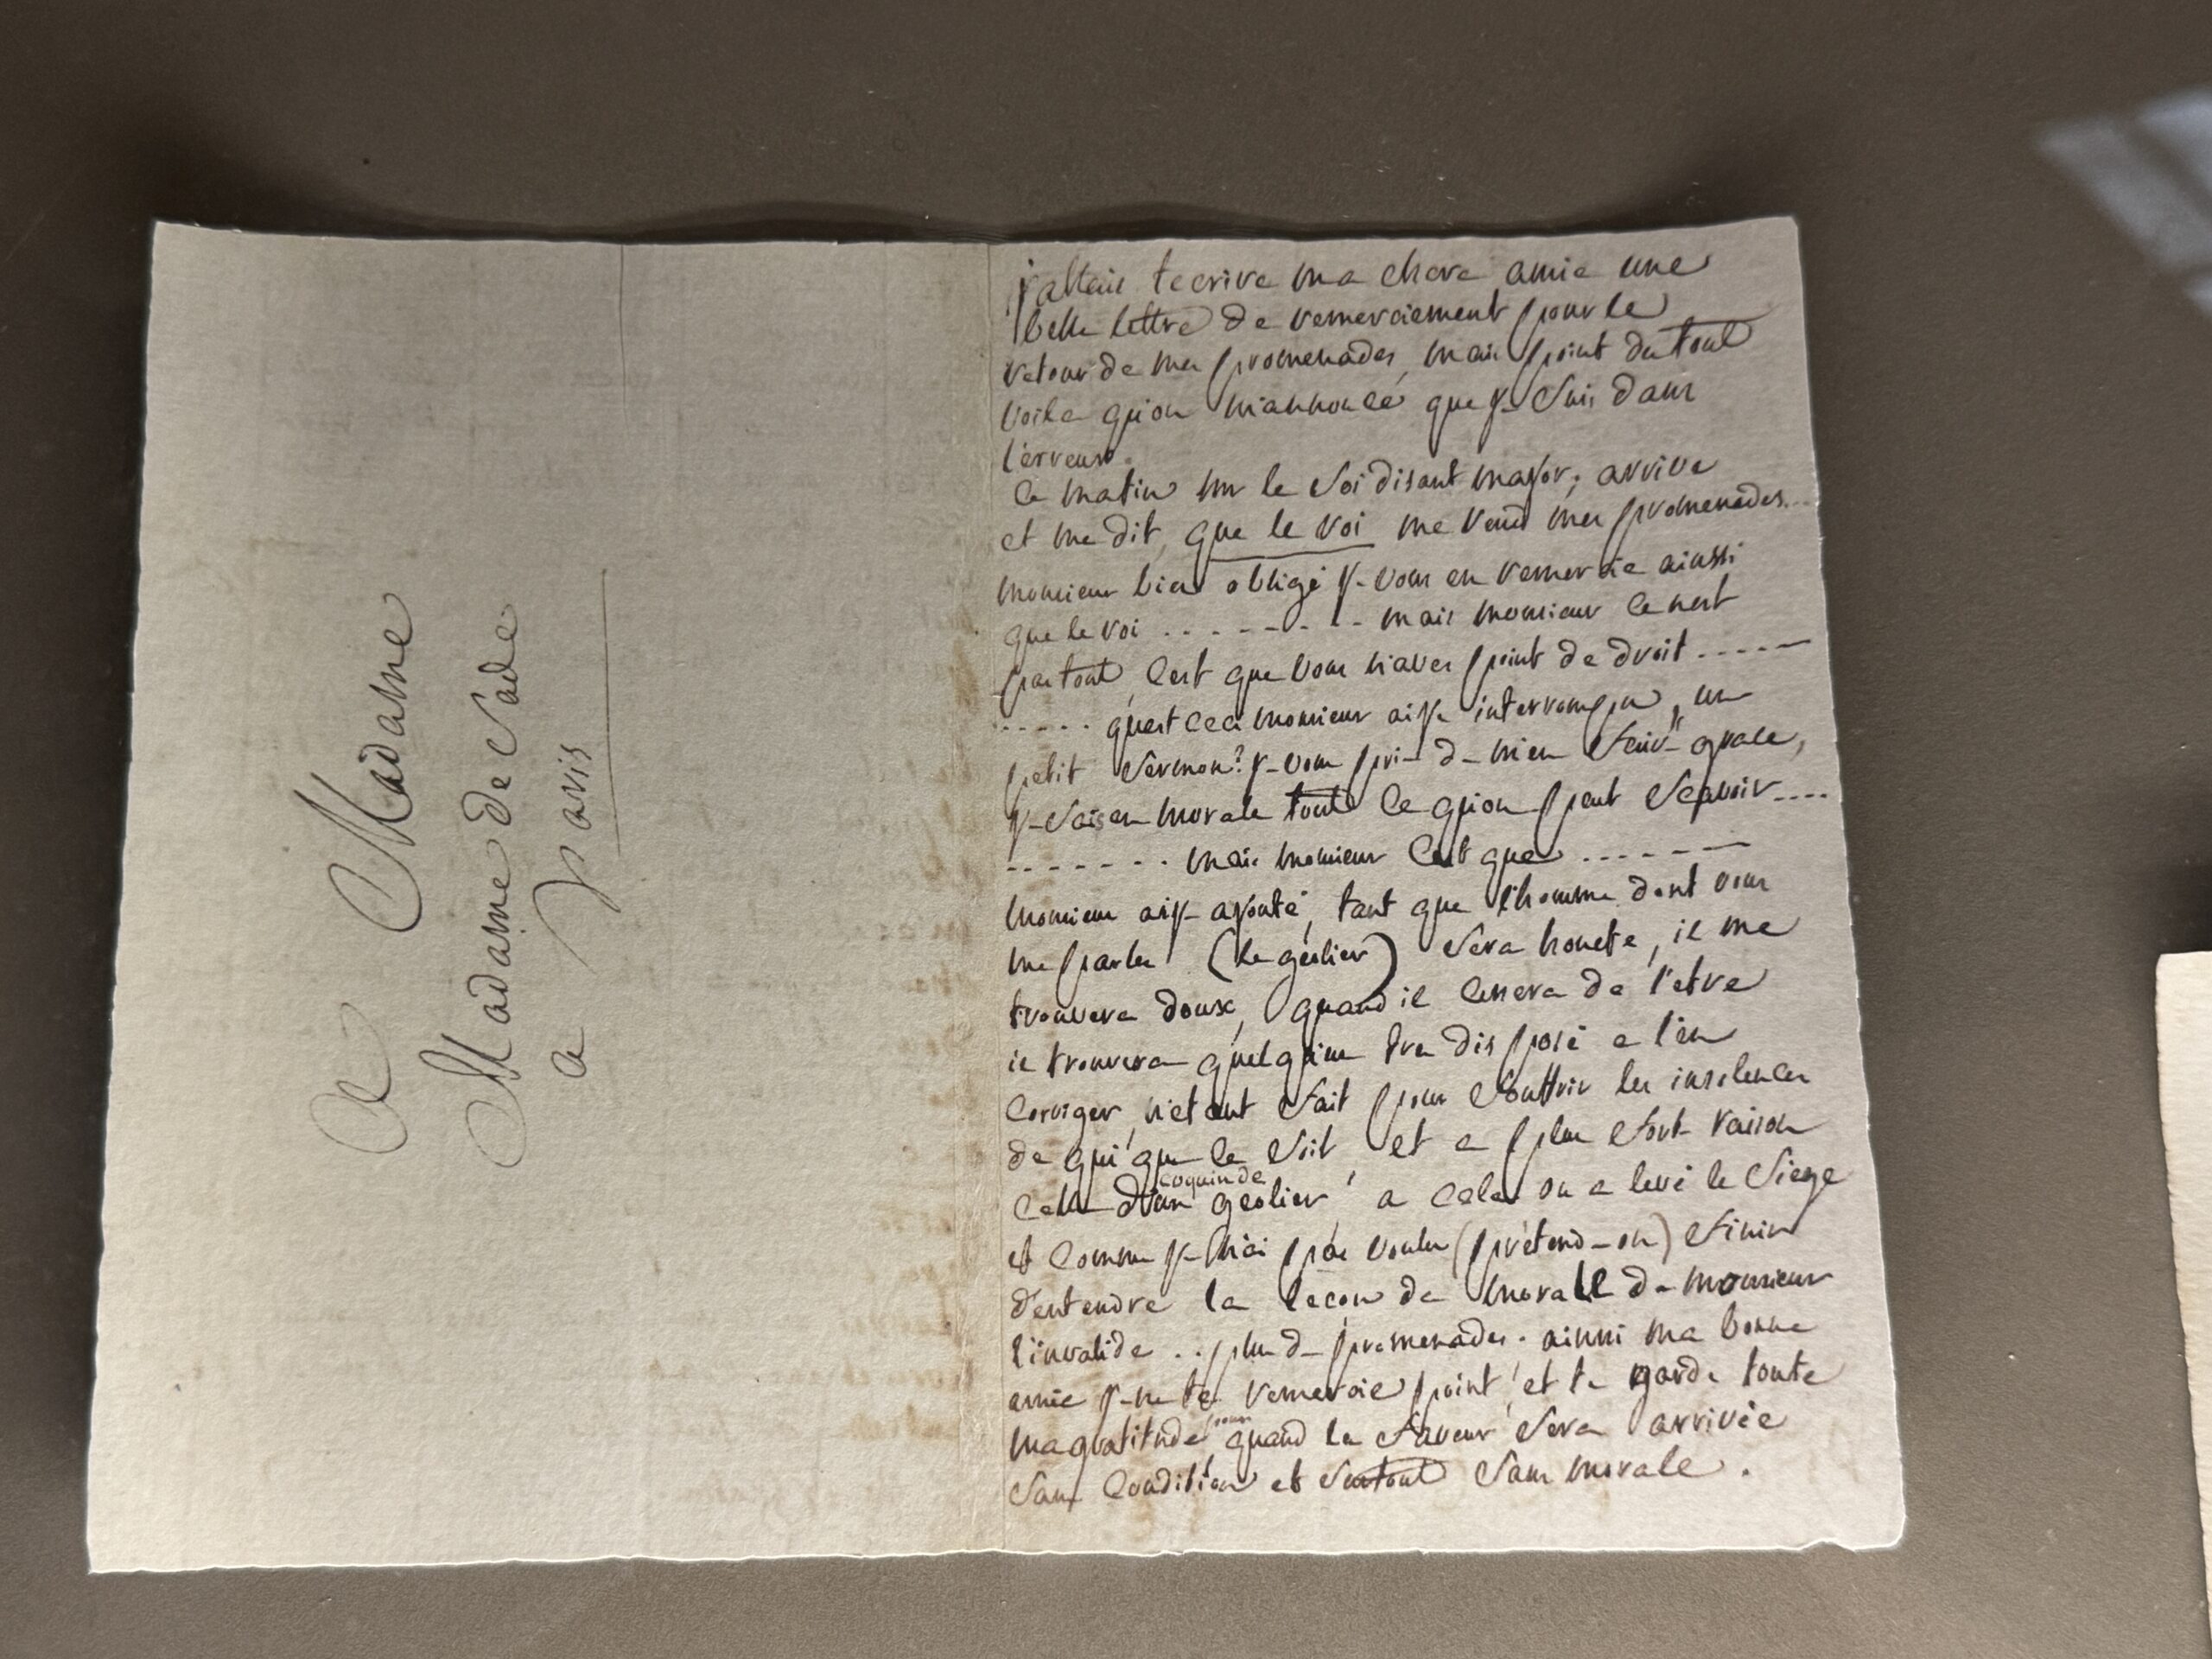 A Madame
Madame de Sade
a Paris
j'allais tecrire ma chere amie une
belle lettre de remerciement pour le
retour de mes promenades, mais point du tout
voila qu'on m'annonce que je suis dans
l'erreur.
ce matin mr le soi disant major, arrive
et me dit, que le roi me rend mes promenades...
monsieur bien obligé je vous en remercie ainssi
que le roi . . - - - - - - mais monsieur ce nest
pas tout, cest que vous n'aves point de droit - - - - -
- - - - - quest ceci monsieur ai je interrompu, un
petit sermon? je vous prie de m'en faire grace,
je sais en morale tout ce qu'on peut scavoir - - - -
- - - - - - - mais monsieur cest que - - - - - - -
monsieur ai je ajouté, tant que l'homme dont vous
me parles (le geolier) sera honete, il me
trouvera doux, quand il cessera de l'etre
il trouvera quelqu'un tres disposé a l'en
corriger, n'etant fait pour souffrir les insolences
de qui que ce soit, et a plus forte raison
celle d'un coquin de geolier, a cela on a levé le siege
et comme je n'ai pas voulu (pretend-on) finir
d'entendre la lecon de morale de monsieur
l'invalide . . plus de promenades. ainssi ma bonne
amie je ne te remercie point, et te garde toute
ma gratitude pour quand la faveur sera arrivée
sans condition et surtout sans morale.